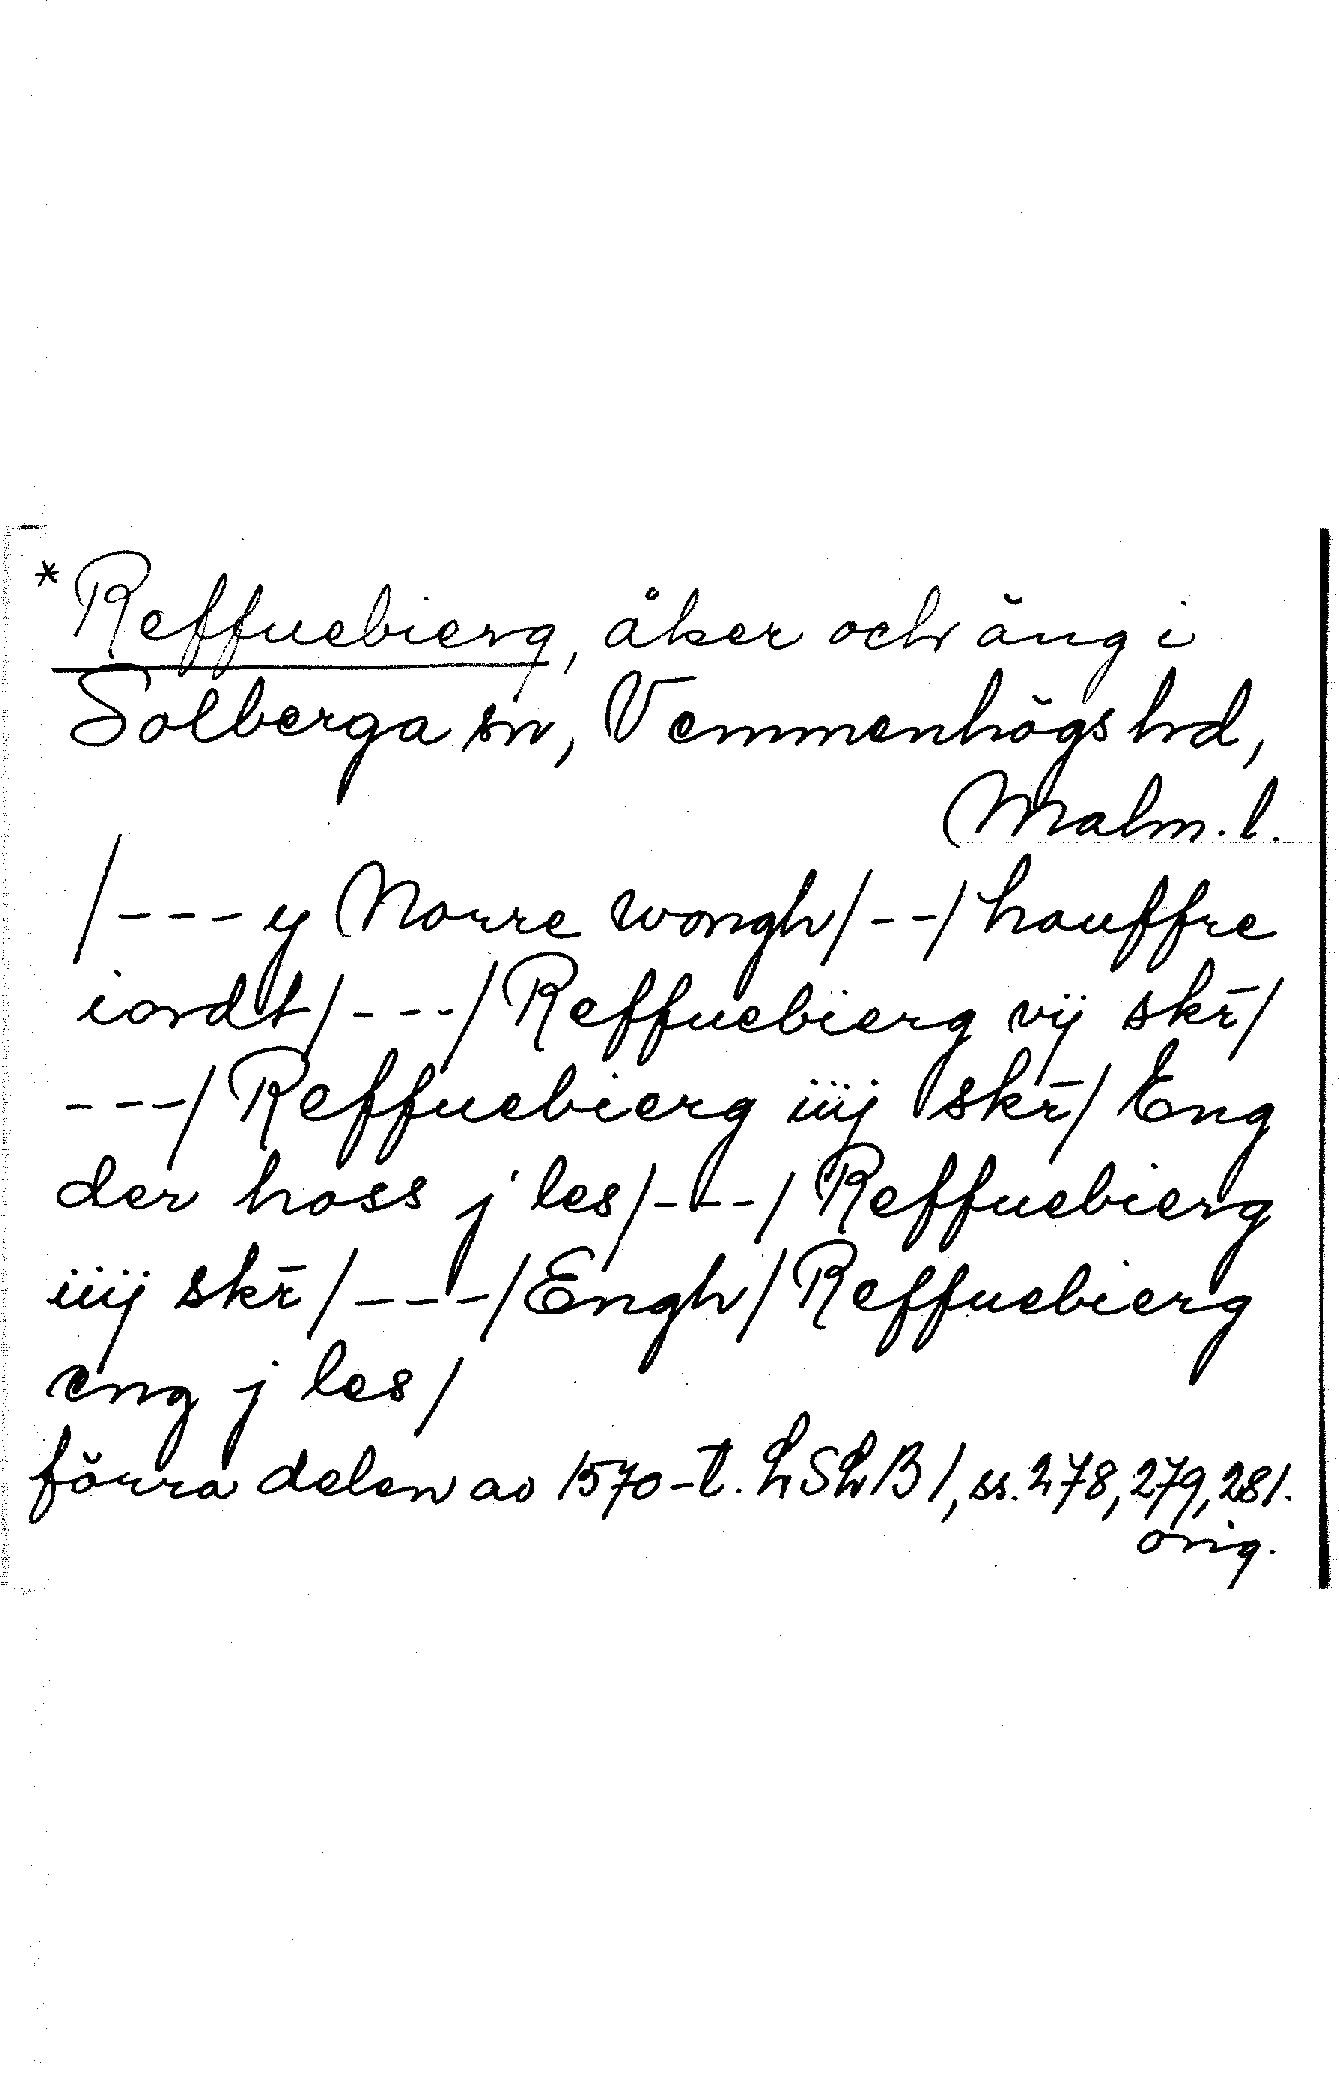 *Reffuebierg, åker och äng i
Solberga sn, Vemmenhögs hd,
Malm. l.
/--- y Norre wongh/--/houffre
iordt/---/Reffuebierg vÿ skr̄/
---/Reffuebierg iiij skr̄/Eng
der hoss j les/---/Reffuebierg
iiij skr̄/---/Engh/Reffuebierg
eng j les/
förra delen av 1570-t. LSLB1, ss. 278, 279, 281.
orig.